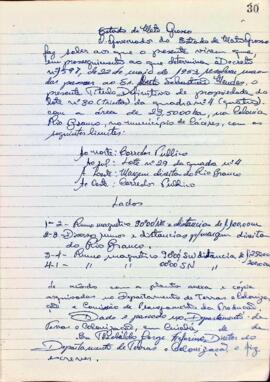 30
Estado de Mato Grosso
O Governador do Estado de Mato Grosso
faz saber aos que o presente virem que,
em prosseguimento ao que determina o Decreto
nº 1.597, de 22 de maio de 1953
o presente Titulo Definitivo de propriedade do
lote nº 30 (trinta) da quadra nº 4 (quatro)
com a área de 29,5000 ha, na Colonia
Rio Branco, no municipio de Cáceres, com os
seguintes limites:
Ao norte: Corredor Publico
Ao sul: Lote nº 29 da quadra nº 4
A Leste: Margem direita do Rio Branco
Ao Oeste: Corredor Publico
Lados
1-2 - Rumo magnetico e distancia de
2-3 Diversos rumos e distancias p/margem direita
do Rio Branco.
3-4 - Rumo magnetico 9000 SW distancia
4-1 " " 0000 SN "
de acôrdo com a planta anexa e cópia
arquivadas no Departamento de Terras e Colonização
e Comissão de Planejamento da Produção
Dado e passado no Departamento de
Terras e Colonização, em Cuiabá
Diretor do
Departamento de Terras e Colonização o fiz
escrever.